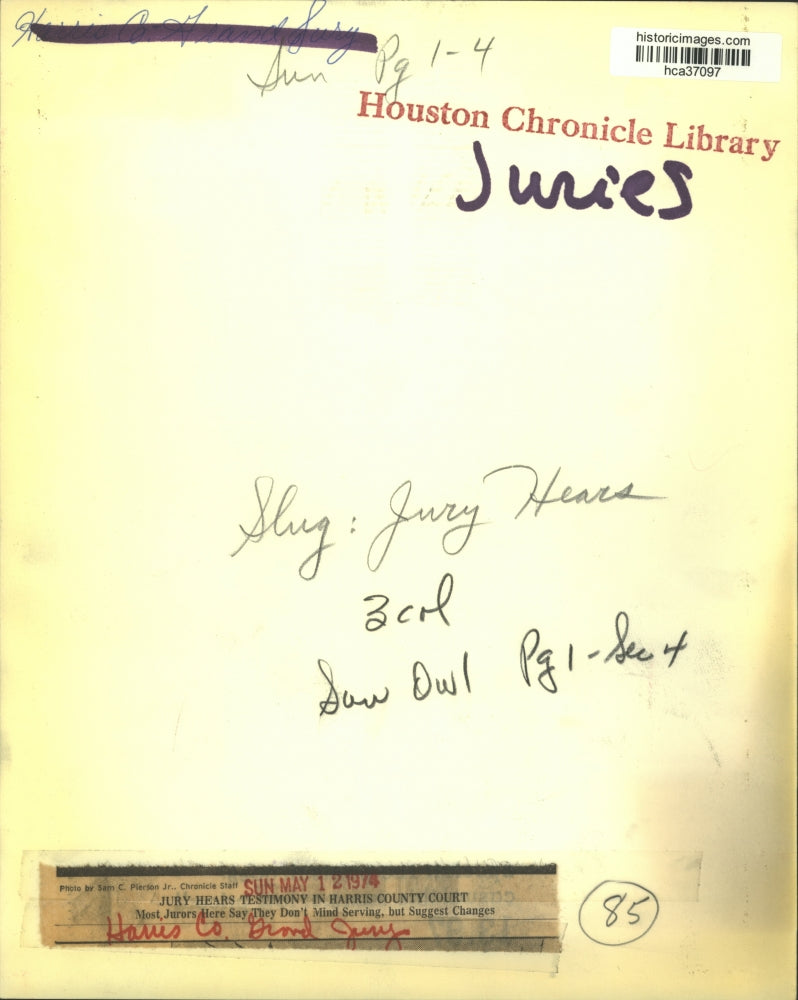 Harris Co Grand Jury
Sun Pg 1-4
historicimages.com
hca37097
Houston Chronicle Library
Juries
Slug: Jury Hears
3 col
Sun Owl Pg 1-Sec 4
Photo by Sam C. Pierson Jr., Chronicle Staff
SUN MAY 12 1974
JURY HEARS TESTIMONY IN HARRIS COUNTY COURT
Most Jurors Here Say They Don't Mind Serving, but Suggest Changes
Harris Co. Grand Jury
85